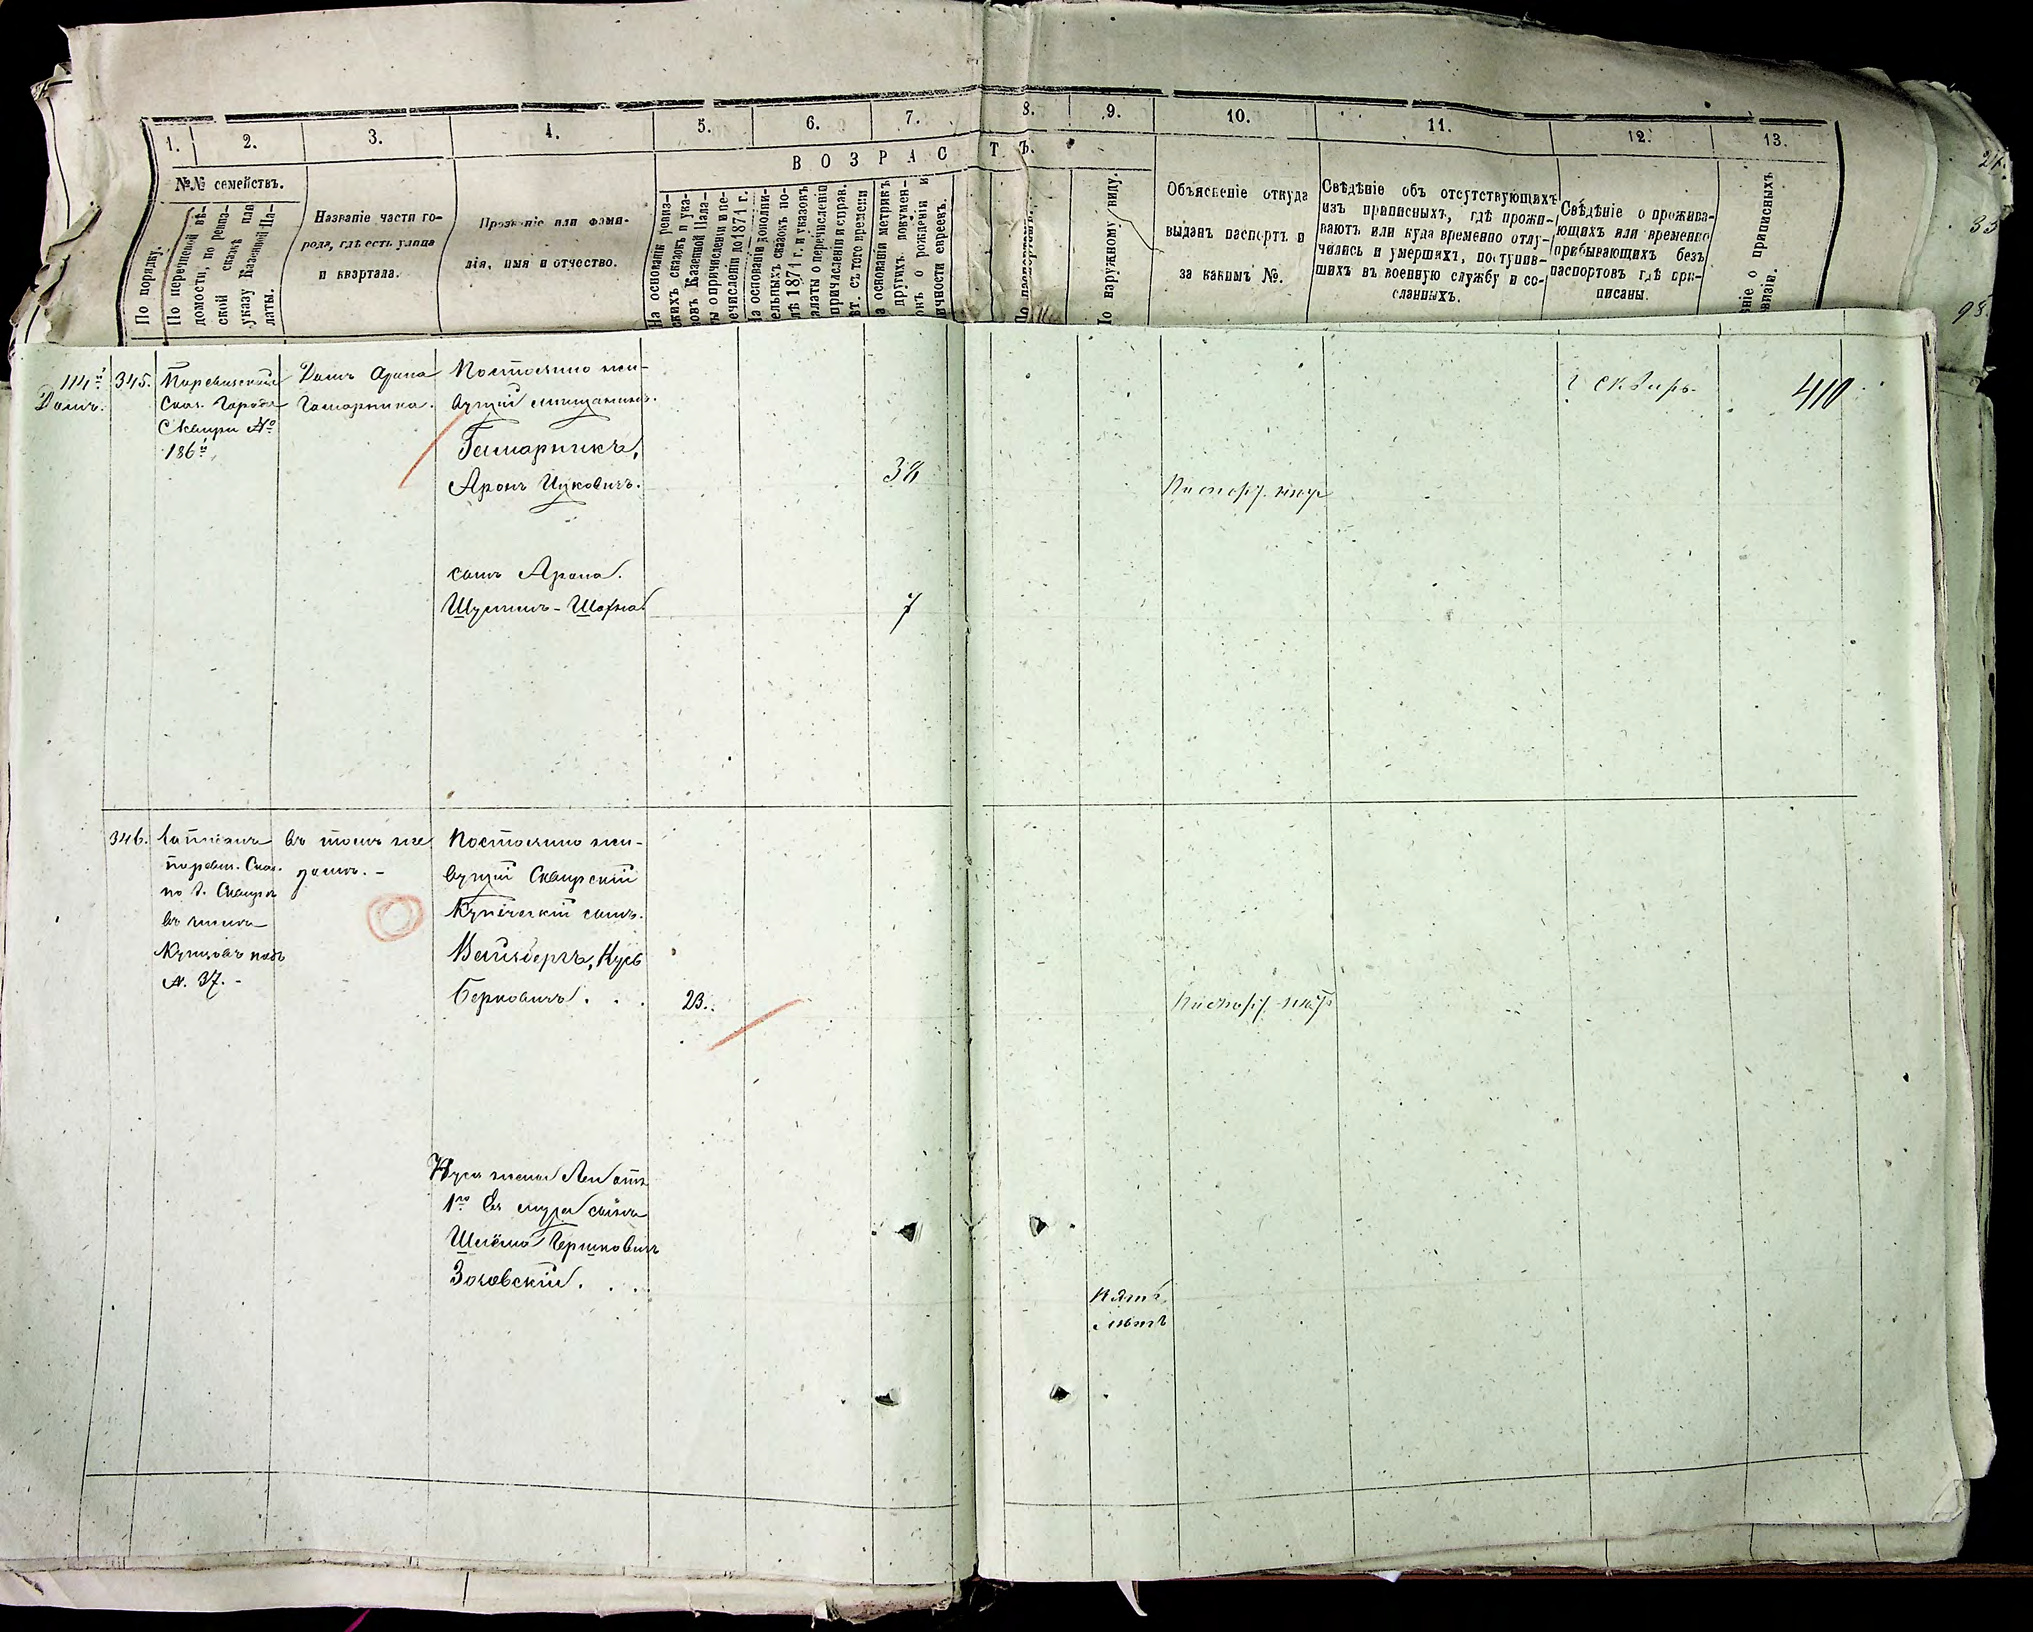 1.
2.
3.
4.
5.
6.
7.
8.
9.
10.
11.
12.
13.
ВОЗРАСТЪ.
№№ семействъ.
По порядку.
По перечневой вѣ-
домости, по ревиз-
ской сказкѣ или
указу Казенной Па-
латы.
Названіе части го-
рода, гдѣ есть улица
и квартала.
Прозваніе или фами-
лія, имя и отчество.
На основаніи ревиз-
скихъ сказокъ и ука-
зовъ Казенной Пала-
ты о причисленіи и пе-
речисленіи до 1871 г.
На основаніи дополни-
тельныхъ сказокъ по-
слѣ 1871 г. и указовъ
палаты о перечисленіи
причисленіи и справ.
лѣт. съ того времени
На основаніи метрикъ
другихъ докумен-
о рожденіи и
личности евреевъ.
По наружному виду.
Объясненіе откуда
выданъ паспортъ и
за какимъ №.
Свѣдѣніе объ отсутствующихъ
изъ приписныхъ, гдѣ прожи-
ваютъ или куда временно отлу-
чились и умершихъ, поступив-
шихъ въ военную службу и со-
сланныхъ.
Свѣдѣніе о прожива-
ющихъ или временно
прибывающихъ безъ
паспортовъ гдѣ при-
писаны.
о приписныхъ
114й
Домъ.
345.
Поревизской
Сказ. Города
Сквиры №
186й
Домъ Арона
Гамарника.
Постоянно жи-
вущій мищанинъ.
Гамарникъ,
Аронъ Ицковичъ.
38
Сынъ Арона.
Шулимъ-Шахна
7
г Сквиръ.
410
346.
поревиз. Сказ.
по г. Сквирѣ
въ числѣ
Купцовъ подъ
№. 37. -
въ томъ же
домѣ. -
Постоянно жи-
вущій Сквирскій
Купеческій сынъ.
Вайнбергъ, Кусь
Берковичъ. . .
23.
Куся жены Леи отъ
1го Ея мужа сынъ
Шлёма Гершковичъ
Зозовскій. . .
Пять
лѣтъ